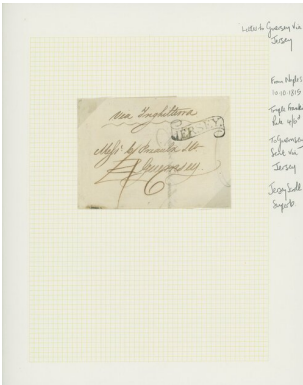 Letter to Guernsey via
Jersey
From Naples
10.10.1815
Single
Rate 4/6d
To Guernsey
Sent via
Jersey
Jersey Scroll
Superb.
via Inghilterra
JERSEY
Guernsey